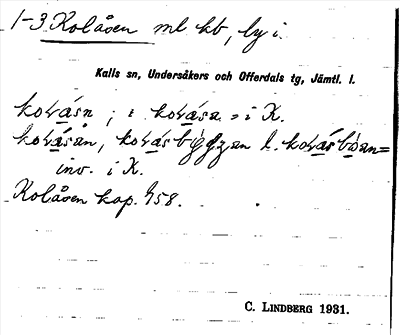 1-3 Kolåsen ml kb, by i.
Kalls sn, Undersåkers och Offerdals tg, Jämtl. l.
koɫásn ; i koɫása = i K.
koɫásån, koɫásbýggjan l. koɫásbòan=
inv. i K.
Kolåsen kap. 458.
C. LINDBERG 1931.